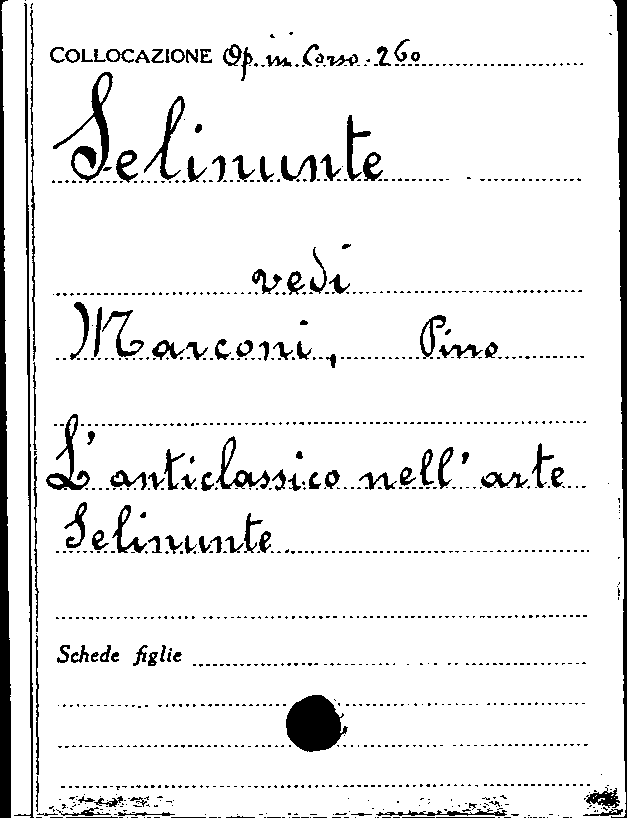 COLLOCAZIONE Op. in Corso. 260
Selinunte
vedi
Marconi, Pirro
L'anticlassico nell'arte
Selinunte
Schede figlie